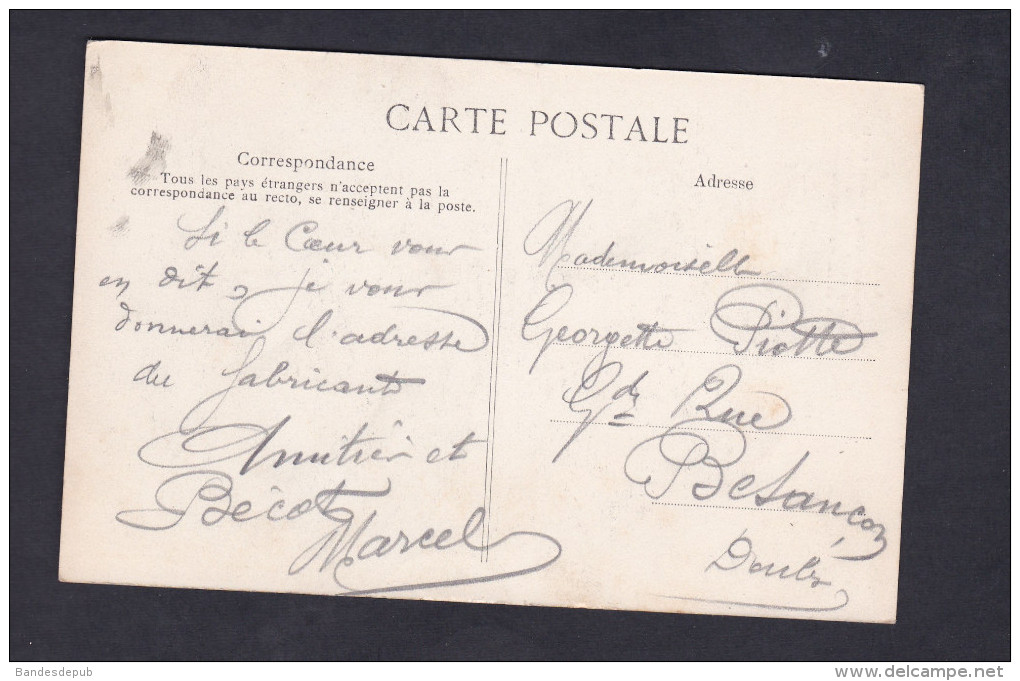 CARTE POSTALE
Correspondance
Tous les pays étrangers n'acceptent pas la
correspondance au recto, se renseigner à la poste.
Si le Cœur vous
en dit, je vous
donnerai l'adresse
du fabricant
Amitiés et
Bécot
Marcel
Adresse
Mademoiselle
Georgette Piotte
Gde Rue
Besançon
Doubs
Bandesdepub
www.delcampe.net